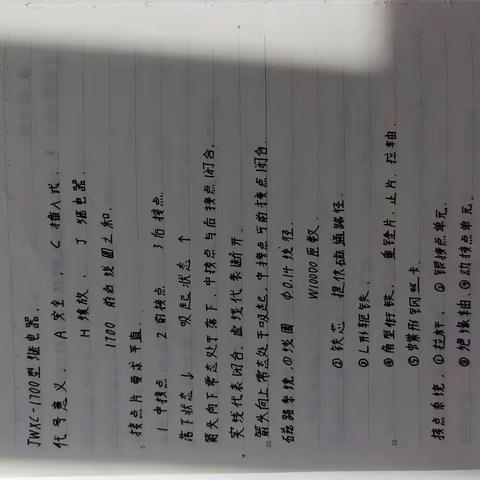 JWXC-1700型继电器.
代号意义, A 安全, C 插入式.
H 缓放, J 继电器.
1700 前后线圈之和.
接点片要求平直.
1 中接点 2 前接点 3 后接点.
落下状态 ↓ 吸起状态 ↑
箭头向下常态处于落下, 中接点与后接点闭合,
实线代表闭合, 虚线代表断开.
箭头向上常态处于吸起, 中接点与前接点闭合.
磁路系统, ①线圈 Φ0.14 线径.
W10000 匝数.
② 铁芯 提供磁通路径.
③ L形轭铁.
④ 角型衔铁、重锤片, 止片, 拉轴.
⑤ 蝶形钢丝卡.
接点系统, ① 拉杆, ② 银接点单元.
③ 绝缘轴, ④ 动接点单元.